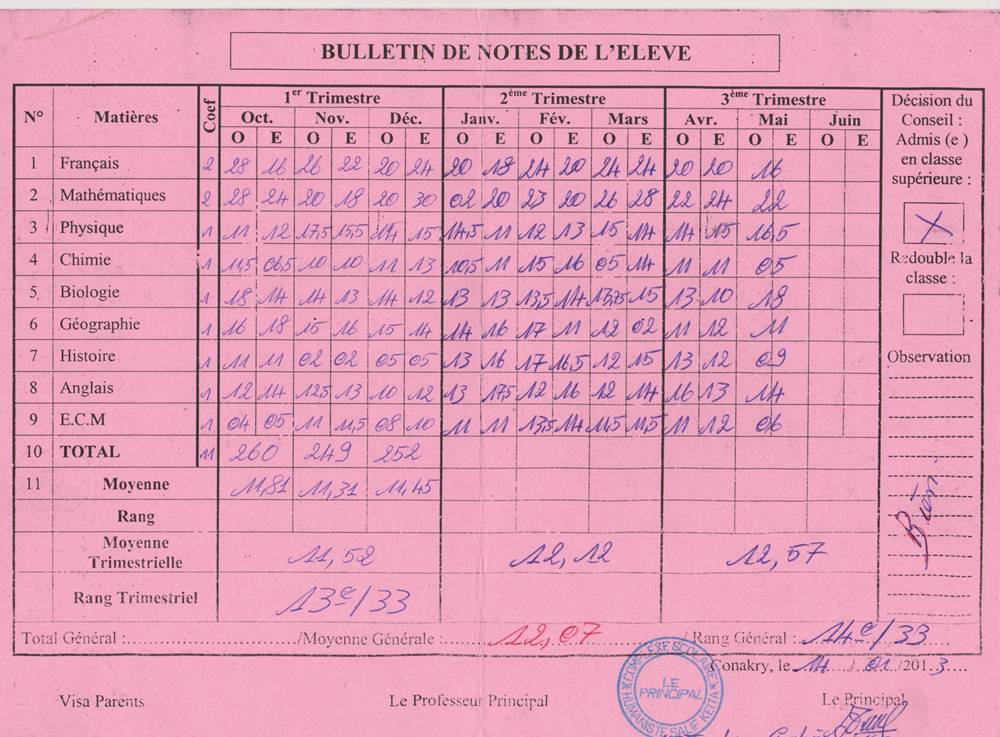 BULLETIN DE NOTES DE L'ELEVE
N° Matières Coef 1er Trimestre 2ème Trimestre 3ème Trimestre Décision du Conseil : Admis (e) en classe supérieure :
Oct. Nov. Déc. Janv. Fév. Mars Avr. Mai Juin
O E O E O E O E O E O E O E O E O E
1 Français 2 28 16 26 22 20 24 20 18 24 20 24 24 20 20 16
2 Mathématiques 2 28 24 20 18 20 30 02 20 23 20 26 28 22 24 22
3 Physique 1 11 12 17,5 15,5 14 15 14,5 11 12 13 15 14 14 15 16,5
X
4 Chimie 1 11,5 06,5 10 10 11 13 10,5 11 15 16 05 14 11 11 05
Redouble la classe :
5 Biologie 1 18 14 14 13 14 12 13 13 13,5 14 13,75 15 13 10 18
6 Géographie 1 16 18 15 16 15 14 14 16 17 11 12 02 11 12 11
7 Histoire 1 11 11 02 02 05 05 13 16 17 16,5 12 15 13 12 09
Observation
8 Anglais 1 12 14 12,5 13 10 12 13 17,5 12 16 12 14 16 13 14
9 E.C.M 1 04 05 11 11,5 08 10 11 11 13,5 14 11,5 11,5 11 12 06
10 TOTAL 11 260 249 252
11 Moyenne 11,81 11,31 11,45
Rang
Bien
Moyenne Trimestrielle 11,52 12,12 12,57
Rang Trimestriel 13e/33
Total Général :............/Moyenne Générale :.......12,07......./Rang Général : 14e/33
Conakry, le 14 / 01 /2013
COMPLEXE SCOLAIRE
LE PRINCIPAL
HUMANISTE SALIF KEITA
Visa Parents Le Professeur Principal Le Principal